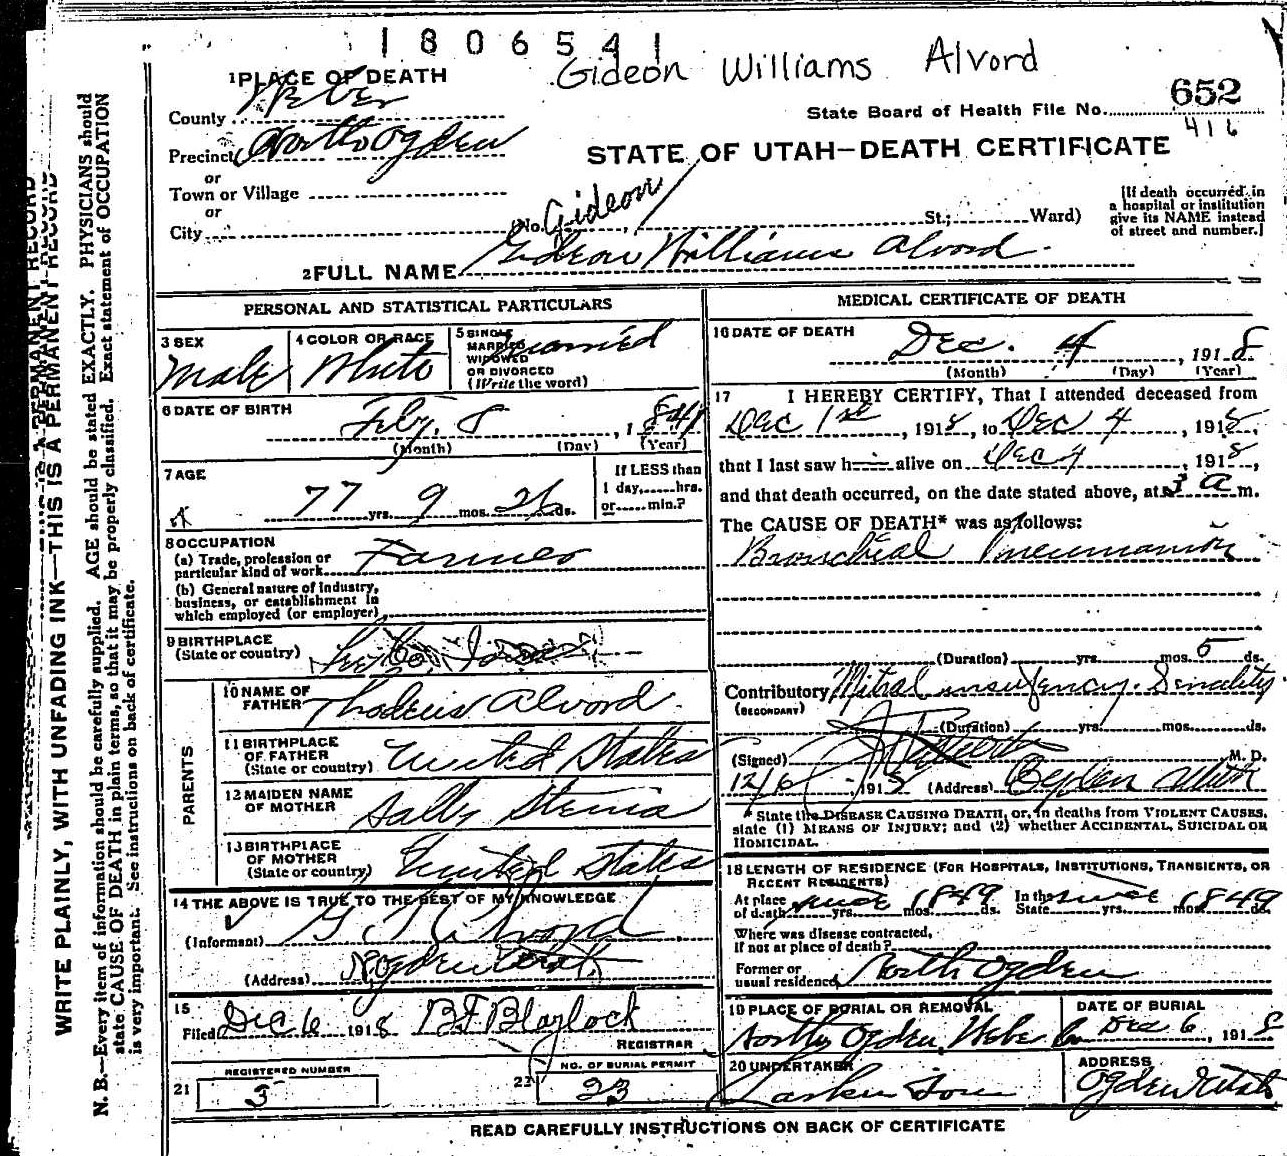 1806541
Gideon Williams Alvord
1 PLACE OF DEATH
County Weber
State Board of Health File No. 652
416
Precinct North Ogden
STATE OF UTAH—DEATH CERTIFICATE
or
Town or Village
or
City
No. Gideon St.; Ward)
[If death occurred in
a hospital or institution
give its NAME instead
of street and number.]
2 FULL NAME Gideon Williams Alvord
PERSONAL AND STATISTICAL PARTICULARS
3 SEX
Male
4 COLOR OR RACE
White
5 SINGLE
MARRIED
WIDOWED
OR DIVORCED
(Write the word)
married
6 DATE OF BIRTH
Feby. 8, 1841
(Month) (Day) (Year)
7 AGE
77 yrs. 9 mos. 26 ds.
If LESS than
1 day, hrs.
or min.?
8 OCCUPATION
(a) Trade, profession or
particular kind of work Farmer
(b) General nature of industry,
business, or establishment in
which employed (or employer)
9 BIRTHPLACE
(State or country)
PARENTS
10 NAME OF
FATHER Alvord
11 BIRTHPLACE
OF FATHER
(State or country) United States
12 MAIDEN NAME
OF MOTHER Sally
13 BIRTHPLACE
OF MOTHER
(State or country) United States
14 THE ABOVE IS TRUE TO THE BEST OF MY KNOWLEDGE
(Informant) Alvord
(Address) N. Ogden Utah
15
Filed Dec 6 1918 Blaylock
REGISTRAR
21 REGISTERED NUMBER
3
22 NO. OF BURIAL PERMIT
23
MEDICAL CERTIFICATE OF DEATH
16 DATE OF DEATH
Dec. 4, 1918
(Month) (Day) (Year)
17 I HEREBY CERTIFY, That I attended deceased from
Dec 1st, 1918, to Dec 4, 1918,
that I last saw h alive on Dec 4, 1918,
and that death occurred, on the date stated above, at 3 a m.
The CAUSE OF DEATH* was as follows:
Bronchial Pneumonia
(Duration) yrs. mos. 5 ds.
Contributory Mitral insufency. Senality
(SECONDARY)
(Duration) yrs. mos. ds.
(Signed) M. D.
12/6, 1918 (Address) Ogden Utah
* State the DISEASE CAUSING DEATH, or, in deaths from VIOLENT CAUSES,
state (1) MEANS OF INJURY; and (2) whether ACCIDENTAL, SUICIDAL OR
HOMICIDAL.
18 LENGTH OF RESIDENCE (FOR HOSPITALS, INSTITUTIONS, TRANSIENTS, OR
RECENT RESIDENTS)
At place
of death since yrs. mos. 1849 ds. In the
State since yrs. mos. 1849 ds.
Where was disease contracted,
if not at place of death?
Former or
usual residence North Ogden
19 PLACE OF BURIAL OR REMOVAL
North Ogden, Weber Co
DATE OF BURIAL
Dec 6, 1918
20 UNDERTAKER
Larkin Sons
ADDRESS
Ogden Utah
READ CAREFULLY INSTRUCTIONS ON BACK OF CERTIFICATE
WRITE PLAINLY, WITH UNFADING INK—THIS IS A PERMANENT RECORD
N. B.—Every item of information should be carefully supplied. AGE should be stated EXACTLY. PHYSICIANS should
state CAUSE OF DEATH in plain terms, so that it may be properly classified. Exact statement of OCCUPATION
is very important. See instructions on back of certificate.